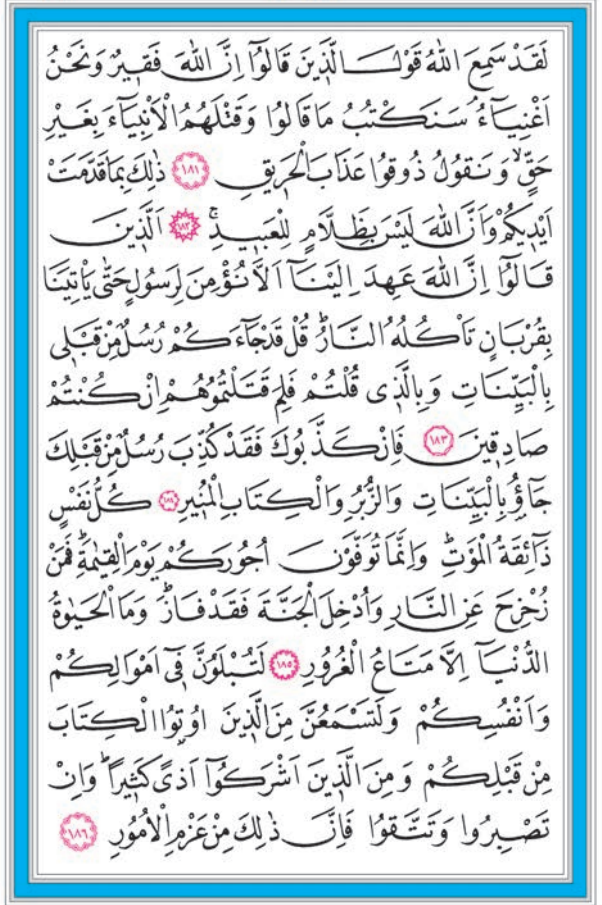 لَقَدْ سَمِعَ اللّٰهُ قَوْلَ الَّذ۪ينَ قَالُٓوا اِنَّ اللّٰهَ فَق۪يرٌ وَنَحْنُ
اَغْنِيَٓاءُۢ سَنَكْتُبُ مَا قَالُوا وَقَتْلَهُمُ الْاَنْبِيَٓاءَ بِغَيْرِ
حَقٍّۙ وَنَقُولُ ذُوقُوا عَذَابَ الْحَر۪يقِ ﴿١٨١﴾ ذٰلِكَ بِمَا قَدَّمَتْ
اَيْد۪يكُمْ وَاَنَّ اللّٰهَ لَيْسَ بِظَلَّامٍ لِلْعَب۪يدِۚ ﴿١٨٢﴾ اَلَّذ۪ينَ
قَالُٓوا اِنَّ اللّٰهَ عَهِدَ اِلَيْنَٓا اَلَّا نُؤْمِنَ لِرَسُولٍ حَتّٰى يَأْتِيَنَا
بِقُرْبَانٍ تَأْكُلُهُ النَّارُۜ قُلْ قَدْ جَٓاءَكُمْ رُسُلٌ مِنْ قَبْل۪ي
بِالْبَيِّنَاتِ وَبِالَّذ۪ي قُلْتُمْ فَلِمَ قَتَلْتُمُوهُمْ اِنْ كُنْتُمْ
صَادِق۪ينَ ﴿١٨٣﴾ فَاِنْ كَذَّبُوكَ فَقَدْ كُذِّبَ رُسُلٌ مِنْ قَبْلِكَ
جَٓاؤُ۫ بِالْبَيِّنَاتِ وَالزُّبُرِ وَالْكِتَابِ الْمُن۪يرِ ﴿١٨٤﴾ كُلُّ نَفْسٍ
ذَٓائِقَةُ الْمَوْتِۜ وَاِنَّمَا تُوَفَّوْنَ اُجُورَكُمْ يَوْمَ الْقِيٰمَةِۜ فَمَنْ
زُحْزِحَ عَنِ النَّارِ وَاُدْخِلَ الْجَنَّةَ فَقَدْ فَازَۜ وَمَا الْحَيٰوةُ
الدُّنْيَٓا اِلَّا مَتَاعُ الْغُرُورِ ﴿١٨٥﴾ لَتُبْلَوُنَّ ف۪ٓي اَمْوَالِكُمْ
وَاَنْفُسِكُمْ وَلَتَسْمَعُنَّ مِنَ الَّذ۪ينَ اُو۫تُوا الْكِتَابَ
مِنْ قَبْلِكُمْ وَمِنَ الَّذ۪ينَ اَشْرَكُٓوا اَذًى كَث۪يرًاۜ وَاِنْ
تَصْبِرُوا وَتَتَّقُوا فَاِنَّ ذٰلِكَ مِنْ عَزْمِ الْاُمُورِ ﴿١٨٦﴾